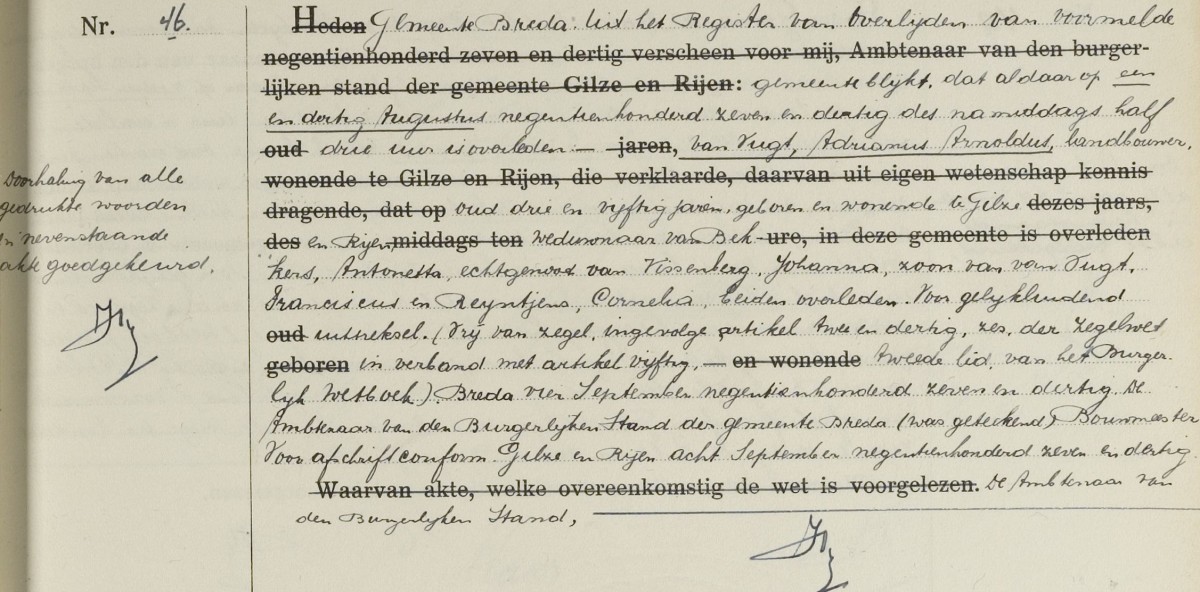 Nr. 46.
Heden Gemeente Breda. Uit het Register van Overlijden van voormelde
negentienhonderd zeven en dertig verscheen voor mij, Ambtenaar van den burger-
lijken stand der gemeente Gilze en Rijen: gemeente blijkt, dat aldaar op een
en dertig Augustus negentienhonderd zeven en dertig des namiddags half
oud drie uur is overleden:— jaren, van Vugt, Adrianus Arnoldus, landbouwer,
wonende te Gilze en Rijen, die verklaarde, daarvan uit eigen wetenschap kennis
dragende, dat op oud drie en vijftig jaren, geboren en wonende te Gilze dezes jaars,
des en Rijen, middags ten weduwnaar van Bek- ure, in deze gemeente is overleden
kers, Antonetta, echtgenoot van Vissenberg, Johanna, zoon van van Vugt,
Franciscus en Reyntjens, Cornelia, beiden overleden. Voor gelijkluidend
oud uittreksel. (Vrij van zegel, ingevolge artikel twee en dertig, zes, der Zegelwet
geboren in verband met artikel vijftig, — en wonende tweede lid, van het Burger-
lijk Wetboek). Breda vier September negentienhonderd zeven en dertig. De
Ambtenaar van den Burgerlijken Stand der gemeente Breda (was geteekend) Bouwmeester
Voor afschrift conform. Gilze en Rijen acht September negentienhonderd zeven en dertig
Waarvan akte, welke overeenkomstig de wet is voorgelezen. De Ambtenaar van
den Burgerlijken Stand,
Doorhaling van alle
gedrukte woorden
in nevenstaande
akte goedgekeurd.